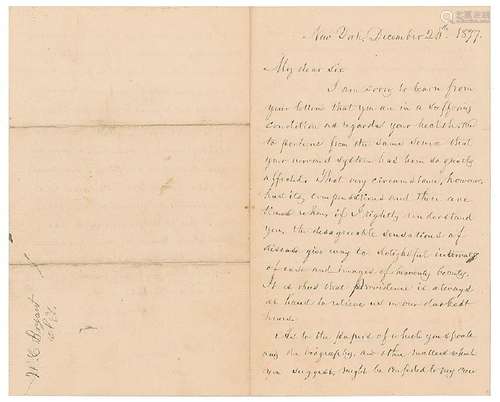 New York, December 26th 1877.
My dear Sir
I am sorry to learn from
your letter that you are in a suffering
condition as regards your health
to portions from the same source that
your nervous system has been so greatly
affected. That very circumstance, however,
has its compensations and there are
times when, if I rightly understand
you, the disagreeable sensations of
disease give way to delightful intervals
of ease and images of heavenly beauty.
It is thus that providence is always
at hand to relieve us in our darkest
hours.
As to the papers of which you speak
and the biography, and other matters which
you suggest might be confided to my care
W. C. Bryant